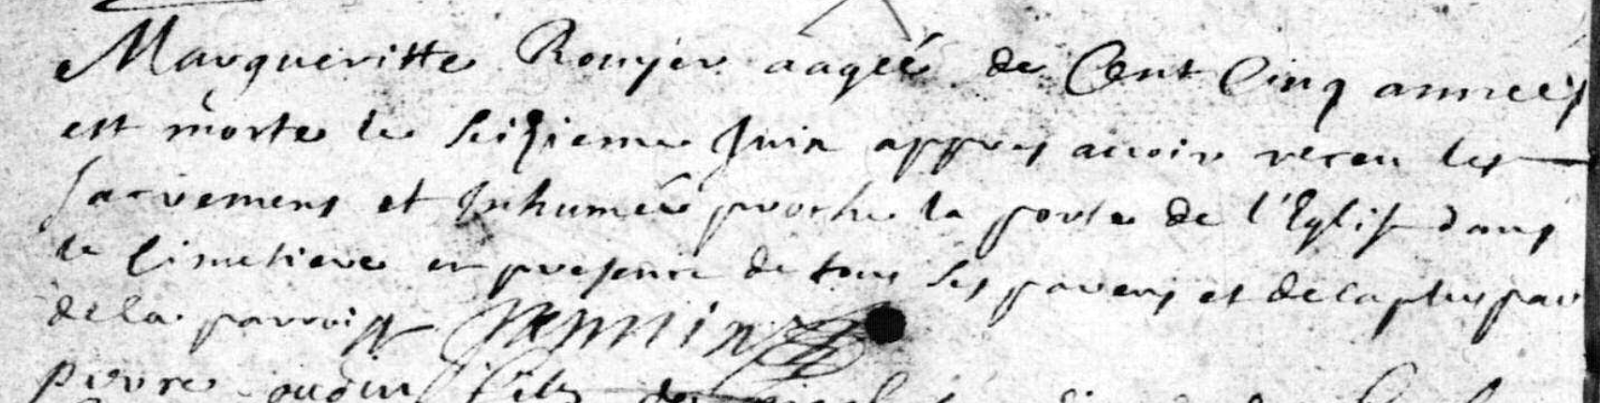 Margueritte Rouyer aageé de Cent Cinq anneéś
est morte le seizieme Juin appres auoir receu les
sacremens et Inhumeé proche la porte de l'Eglise dans
le Cimetiere en presence de tous ses parens et de la plus par
de la parroisse
pierre fils de